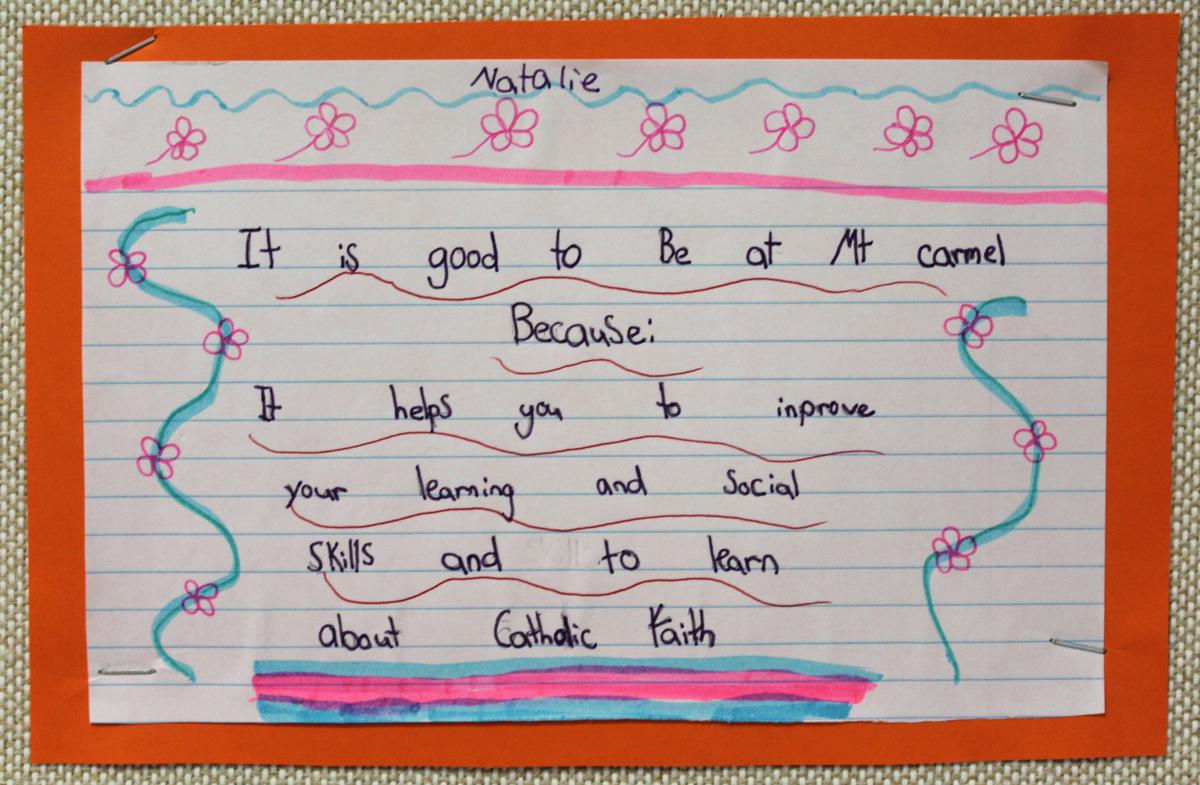 Natalie
It is good to Be at Mt carmel
Because:
It helps you to inprove
your learning and Social
Skills and to learn
about Catholic Faith